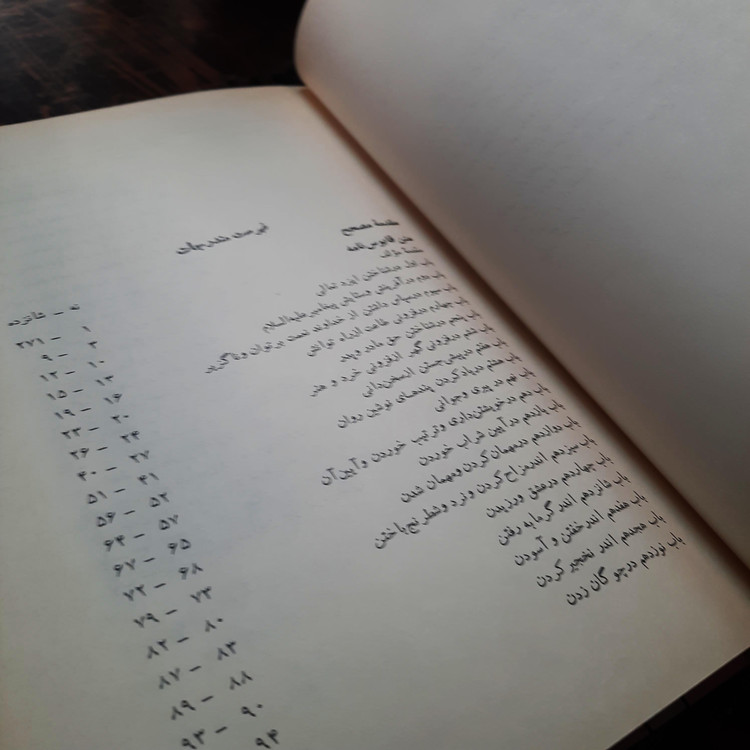 فهرست مندرجات
مقدمهٔ مصحح نه – شانزده
متن قابوس نامه ۱ – ۲۷۱
مقدمهٔ مؤلف ۳ – ۹
باب اول درشناختن ایزد تعالی ۱۰ – ۱۲
باب دوم در آفرینش وستایش پیغامبر علیه‌السلام ۱۳ – ۱۵
باب سیوم درسپاس داشتن از خداوند نعمت بر توان وناگزیر ۱۶ – ۱۹
باب چهارم درفزونی طاعت ازراه توانش ۲۰ – ۲۳
باب پنجم درشناختن حق مادر و پدر ۲۴ – ۲۶
باب ششم درفزونی گهر ازفزونی خرد و هنر ۲۷ – ۴۰
باب هفتم درپیشی جستن ازسخن‌دانی ۴۱ – ۵۱
باب هشتم دریادکردن پندهای نوشین روان ۵۲ – ۵۶
باب نهم در پیری وجوانی ۵۷ – ۶۴
باب دهم درخویشتن‌داری وترتیب خوردن وآیین آن ۶۵ – ۶۷
باب یازدهم در آیین شراب خوردن ۶۸ – ۷۲
باب دوازدهم درمهمان کردن ومهمان شدن ۷۳ – ۷۹
باب سیزدهم اندرمزاح کردن و نرد وشطرنج باختن ۸۰ – ۸۲
باب چهاردهم درعشق ورزیدن ۸۳ – ۸۷
باب شانزدهم اندر گرمابه رفتن ۸۸ – ۸۹
باب هفدهم اندرخفتن و آسودن ۹۰ – ۹۳
باب هجدهم اندر نخجیر کردن ۹۴
باب نوزدهم درچوگان زدن